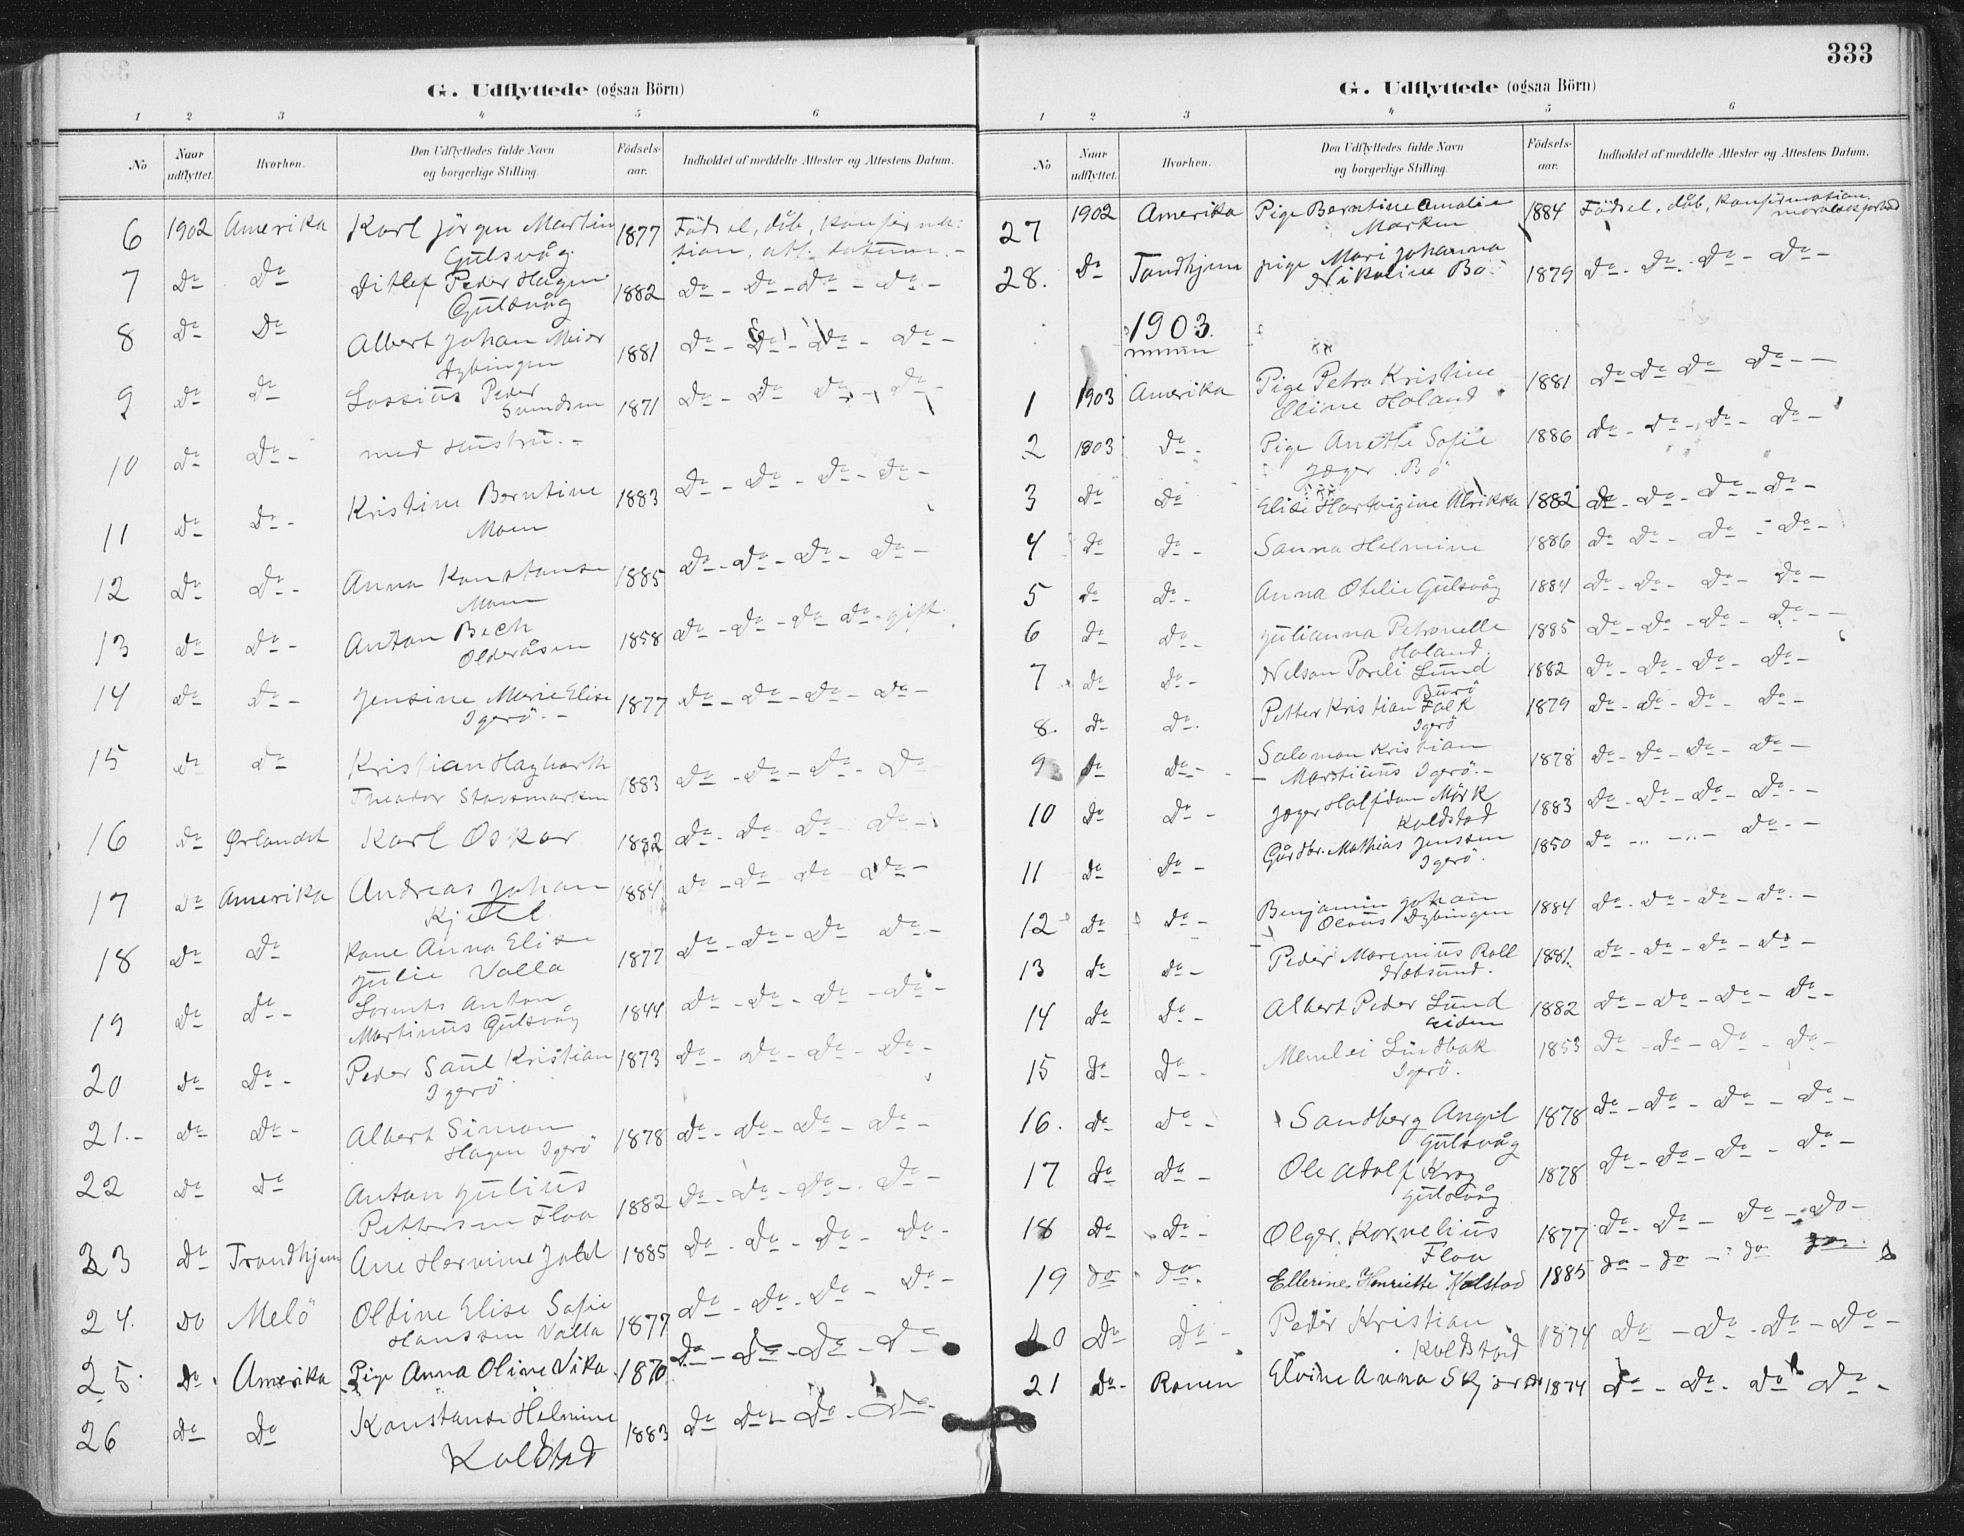 G. Udflyttede (ogsaa Börn)
1 2 3 4 5 6
No Naar udflyttet. Hvorhen. Den Udflyttedes fulde Navn og borgerlige Stilling. Födsels-aar. Indholdet af meddelte Attester og Attestens Datum.
6 1902 Amerika Karl Jörgen Martin 1877 Födsel, dåb, konfirma-
Gulsvåg tion, att. datum. -
7 do do Ditlef Peder Hagen 1882 do - do - do - do -
Gulsvåg
8 do do Albert Johan Meier 1881 do - do - do - do -
Dybingen
9 do do Lossius Peder 1871 do - do do - do -
Svendsen
10 do do - med Hustru. -
11 do do - Kristine Berntine 1883 do - do - do - do -
Moen
12 do do - Anna Konstanse 1885 do - do - do - do -
Moen
13 do do - Anton Bech 1858 do - do - do do - gift.
Olderåsen
14 do do - Jensine Marie Elise 1877 do - do - do - do -
Igerö. -
15 do do Kristian Hagbarth 1883 do - do - do - do -
Theodor Stavsmarken
16 do Ørlandet Karl Oskar 1882 do - do - do - do -
17 do Amerika Andreas Johan 1884 do - do - do - do -
Kjell
18 do do Kone Anna Elise 1877 do - do - do do -
Julie Valla
19 do do - Lornts Anton 1844 do - do - do - do -
Martinus Gulsvåg
20 do do - Peder Saul Kristian 1873 do - do - do - do -
Igerö
21. - do do - Albert Simon 1878 do - do - do - do -
Hagen Igerö
22 do do Anton Julius 1882 do - do - do - do -
Pettersen Floa
23 do Trondhjem Ane Hermine 1885 do - do - do - do -
24. do Melö Oldine Elise Sofie 1877 do - do - do - do -
Hanssen Valla
25. do. Amerika Pige Anna Oline Vika 1870 do - do - do - do
26 do do Konstanse Helmine 1883 do do - do - do -
Koldstad
333
G. Udflyttede (ogsaa Börn)
1 2 3 4 5 6
No Naar udflyttet. Hvorhen. Den Udflyttedes fulde Navn og borgerlige Stilling. Födsels-aar. Indholdet af meddelte Attester og Attestens Datum.
27 1902 Amerika Pige Berntine Amalie 1884 Födsel, dåb, konfirmation,
Marken
28. do Tondhjem pige Mari Johanna 1879 do - do - do - do -
Nikoline Bö
1903.
1 1903 Amerika Pige Petra Kristine 1881 do do do do - -
Oline Holand
2 1903 do - Pige Anette Sofie 1886 do - do - do - do -
Jæger Bö
3 do do Elise Hartvigine Ulrikka 1882 do - do - do - do -
4 do do - Sanna Helmine 1886 do do - do - do -
5 do do - Anna Otelie Gulsvåg 1884 do - do - do - do -
6 do do - Julianna Petronelle 1885 do - do - do - do - -
Holand
7 do do - Nelson Poreli Lund 1882 do - do - do - do -
Burö
8. do do. Petter Kristian Falk 1879 do - do - do - do -
Igerö
9 do do - Salomon Kristian 1878 do - do - do - do -
Martinus Igerö. -
10 do do - Jæger Halfdan Mørk 1883 do - do - do - do - -
Koldstad
11 do do - Gårdbr. Mathias Jenssen 1850 do - .. - .. - do - -
Igerö.
12 do do - Benjamin Johan 1884 do - do - do - do - -
Olaus Dybingen
13 do do - Peder Marenius Roll 1881. do - do - do - do -
Næbsund.
14 do do - Albert Peder Lund 1882 do - do - do - do -
Eiden
15 do do - Lindbak 1853 do - do - do - do -
Igerö.
16. do do - Sandberg Angel 1878 do - do - do - do -
Gulsvåg
17 do do - Ole Adolf Krog 1878 do - do - do - do -
Gulsvåg
18 do do - Olger Kornelius 1877 do - do - do - do -
Floa
19 do do. Ellerine Henriette Kolstad 1885 do - do - do
20 do do - Peder Kristian 1874 do - do - do - do -
Koldstad
21 do - Ranen Elvine Anna 1874 do - do - do do -